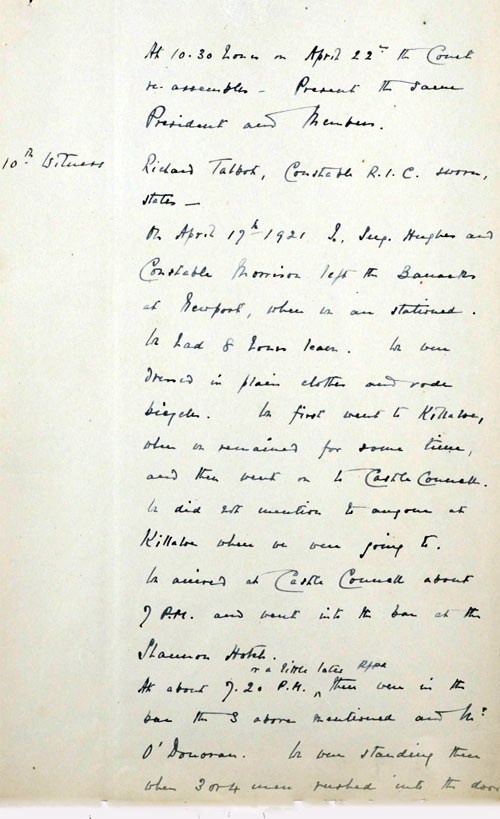 At 10.30 hours on April 22nd the Court
re-assembles - Present the same
President and Members.
10th Witness
Richard Talbot, Constable R.I.C. sworn,
states -
On April 17th 1921 I, Serg. Hughes and
Constable Morrison left the Barracks
at Newport, where we are stationed.
We had 8 hours leave. We were
dressed in plain clothes and rode
bicycles. We first went to Killaloe,
where we remained for some time,
and then went on to Castle Connell.
We did not mention to anyone at
Killaloe where we were going to.
We arrived at Castle Connell about
7 P.M. and went into the bar at the
Shannon Hotel.
or a little later
At about 7.20 P.M. there were in the
bar the 3 above mentioned and Mr
O'Donovan. We were standing there
when 3 or 4 men rushed into the door